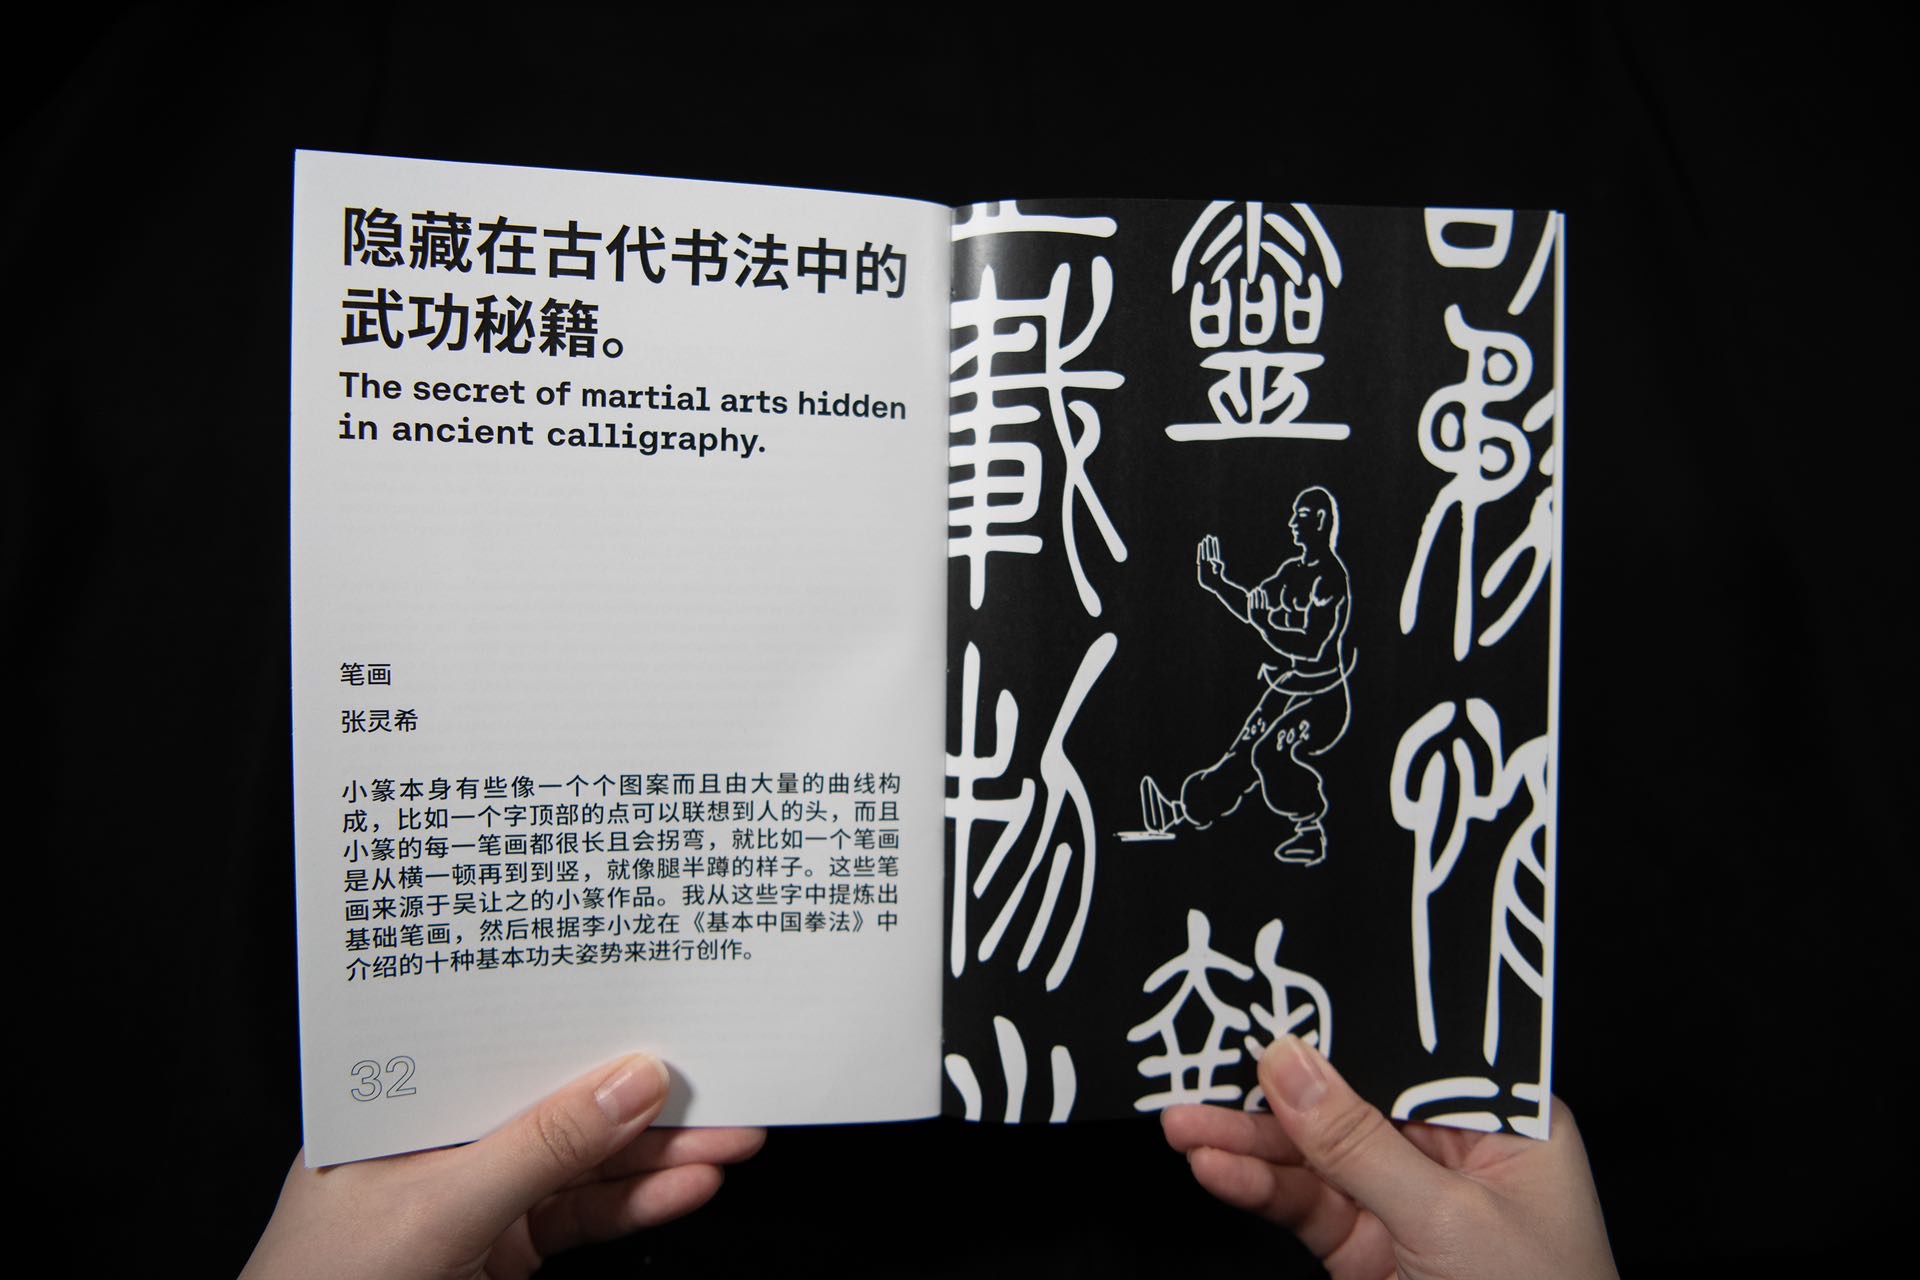 隐藏在古代书法中的
武功秘籍。
The secret of martial arts hidden
in ancient calligraphy.
笔画
张灵希
小篆本身有些像一个个图案而且由大量的曲线构
成，比如一个字顶部的点可以联想到人的头，而且
小篆的每一笔画都很长且会拐弯，就比如一个笔画
是从横一顿再到到竖，就像腿半蹲的样子。这些笔
画来源于吴让之的小篆作品。我从这些字中提炼出
基础笔画，然后根据李小龙在《基本中国拳法》中
介绍的十种基本功夫姿势来进行创作。
32
載
物
靈
20%
80%